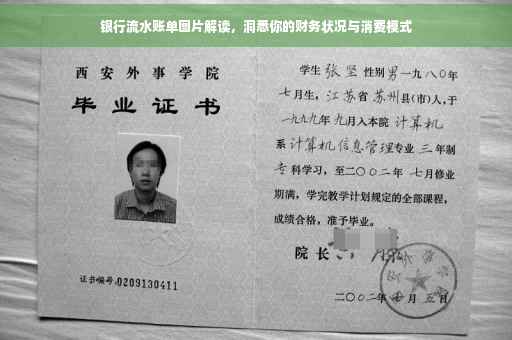 银行流水账单图片解读，洞悉你的财务状况与消费模式
西安外事学院
毕业证书
证书编号:0209130411
学生张坚性别男一九八〇年
七月生，江苏省苏州县(市)人,于
一九九九年九月入本院计算机
系计算机信息管理专业三年制
专科学习，至二〇〇二年七月修业
期满，学完教学计划规定的全部课程，
成绩合格，准予毕业。
院长
二〇〇二年 月五日